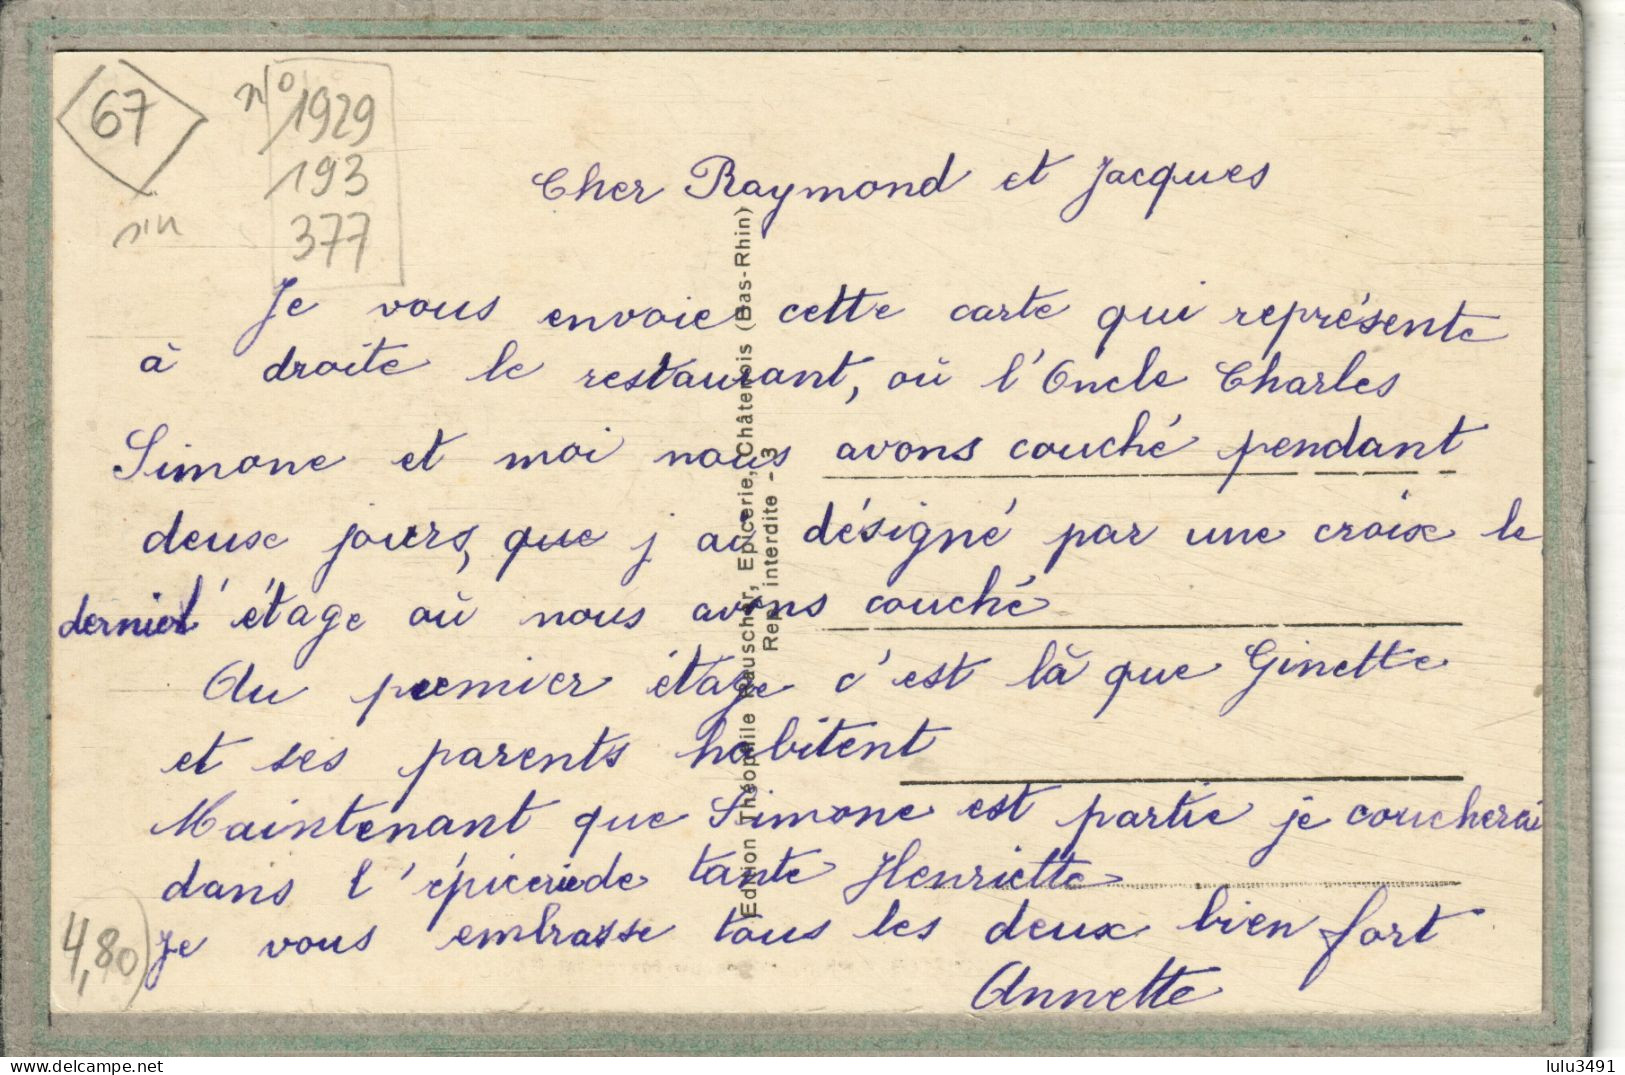 67
n° 1929
193
377
Cher Raymond et Jacques
Je vous envoie cette carte qui représente
à droite le restaurant, où l'Oncle Charles
Simone et moi nous avons couché pendant
deux jours, que j ai désigné par une croix le
dernier étage où nous avons couché
Au premier étage c'est là que Ginette
et ses parents habitent
Maintenant que Simone est partie je coucherai
dans l'épicerie de tante Henriette
Je vous embrasse tous les deux bien fort
Annette
4,80
Edition Théophile Rauscher, Epicerie, Châtenois (Bas-Rhin)
Rep. interdite - 3
delcampe.net
lulu3491